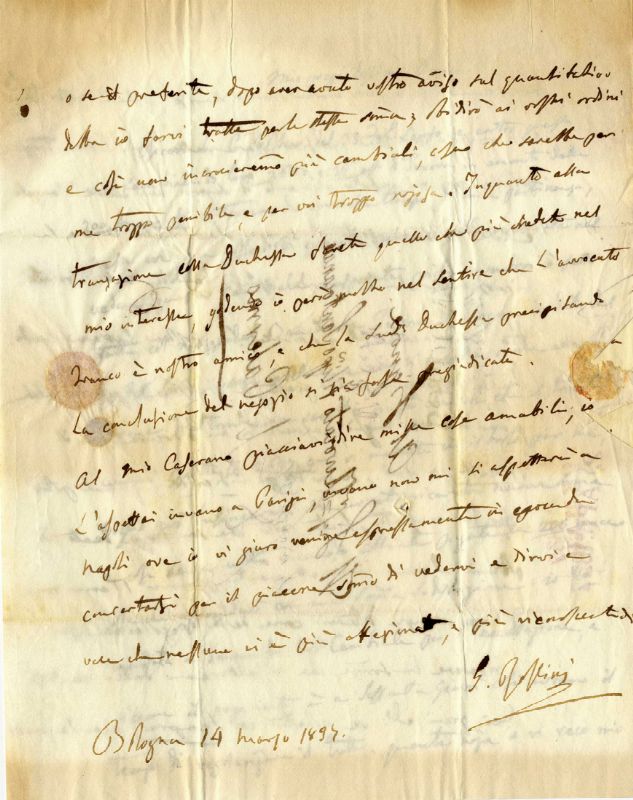 o se preferite, dopo avere avuto vostro avviso sul quantitativo
debba io farvi tratta per la stessa somma; obidirò ai vostri ordini
e così non incrocieremo più cambiali, cosa che sarebbe per
me troppo penibile, e per voi troppo nojosa. Inquanto alla
transazione colla Duchessa farete quello che più credete nel
mio interesse, godendo io però molto nel sentire che l'avvocato
Franco è nostro amico, e che la Sud. Duchessa precipitando
la conclusione del negozio si sia fossa pregiudicata.
Al mio Caserano piacciavi dire mille cose amabili, io
l'aspettai invano a Parigi, invano non mi si aspetterà a
Napoli ove io vi giuro venire espressamente
per il piacere sommo di vedervi e dirvi a
voce che nessuno vi è più affezionato, e più riconoscente di
G. Rossini
Bologna 14 marzo 1837.